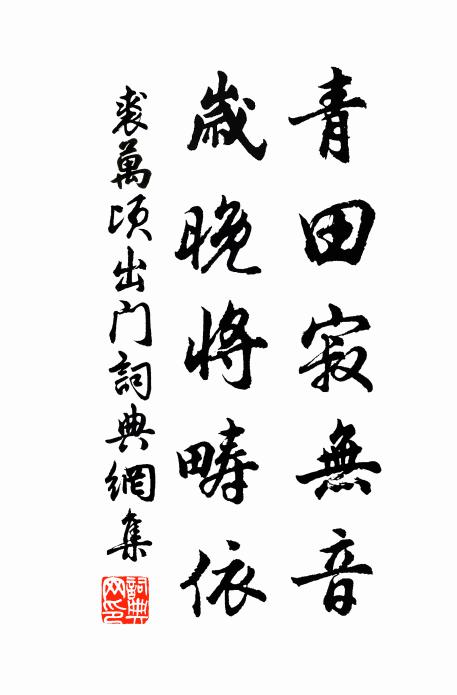 青田寂無音
歲晚將疇依
裘萬頃出门詞典網集
詞典网印